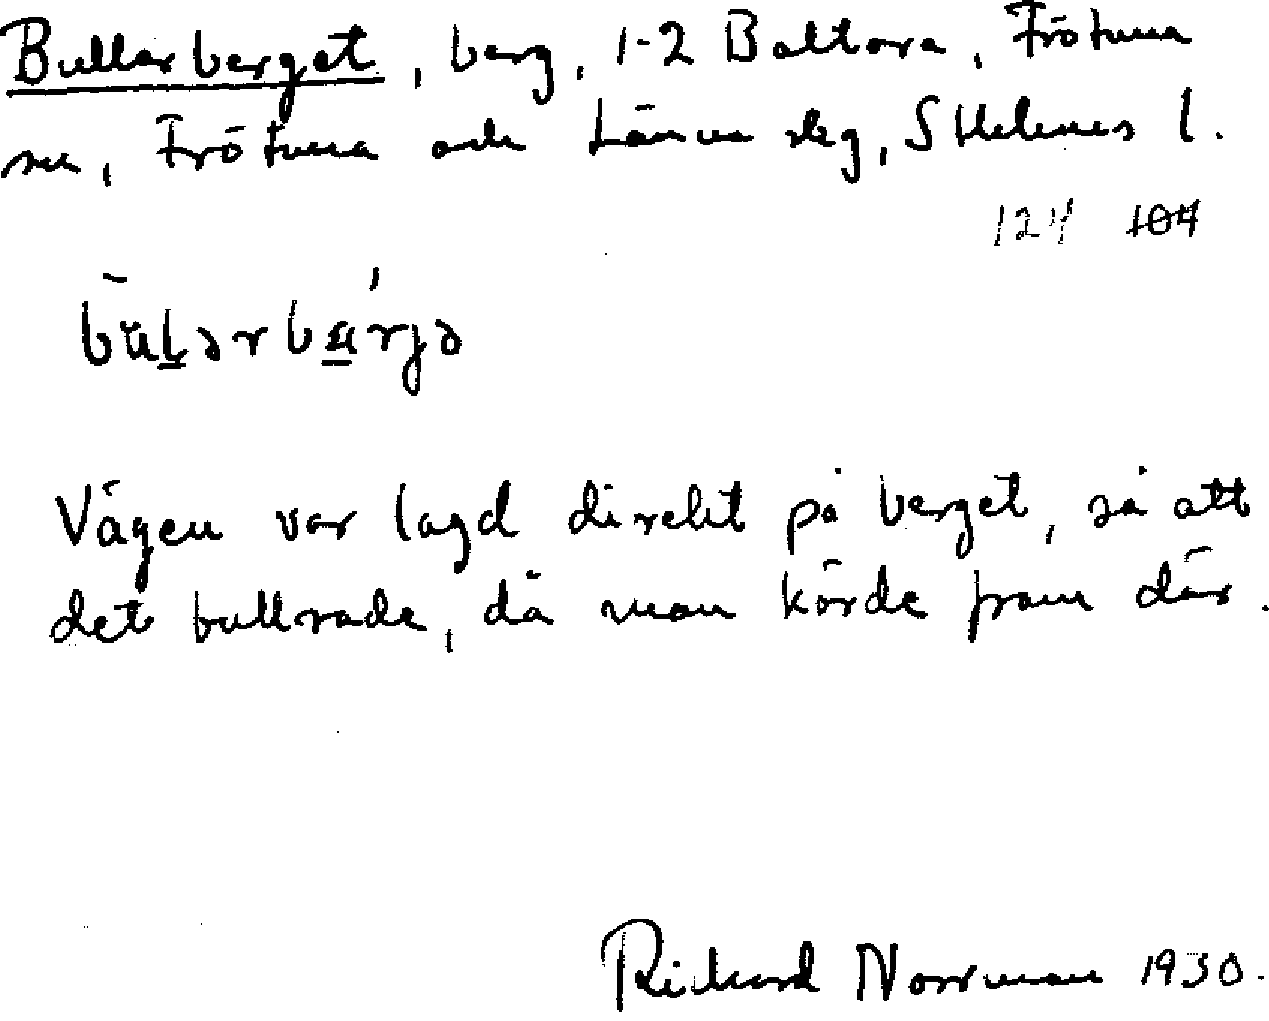 Bullarberget, berg, 1-2 Baltora, Frötuna
sn, Frötuna och Länna skg, Sthlms l.
124 104
Vägen var lagd direkt på berget, så att
det bullrade, då man körde fram där.
Rickard Norrman 1930.